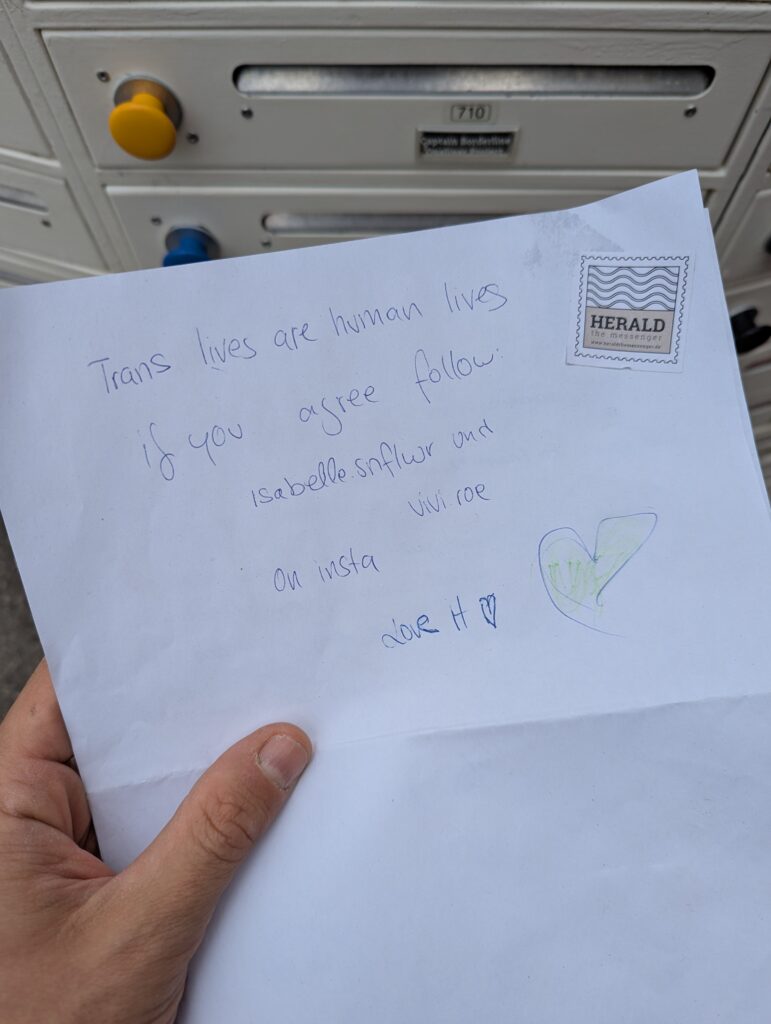 710
Trans lives are human lives
if you agree follow:
isabelle.snflwr und
vivi.roe
on insta
Love H ♡
HERALD
the messenger